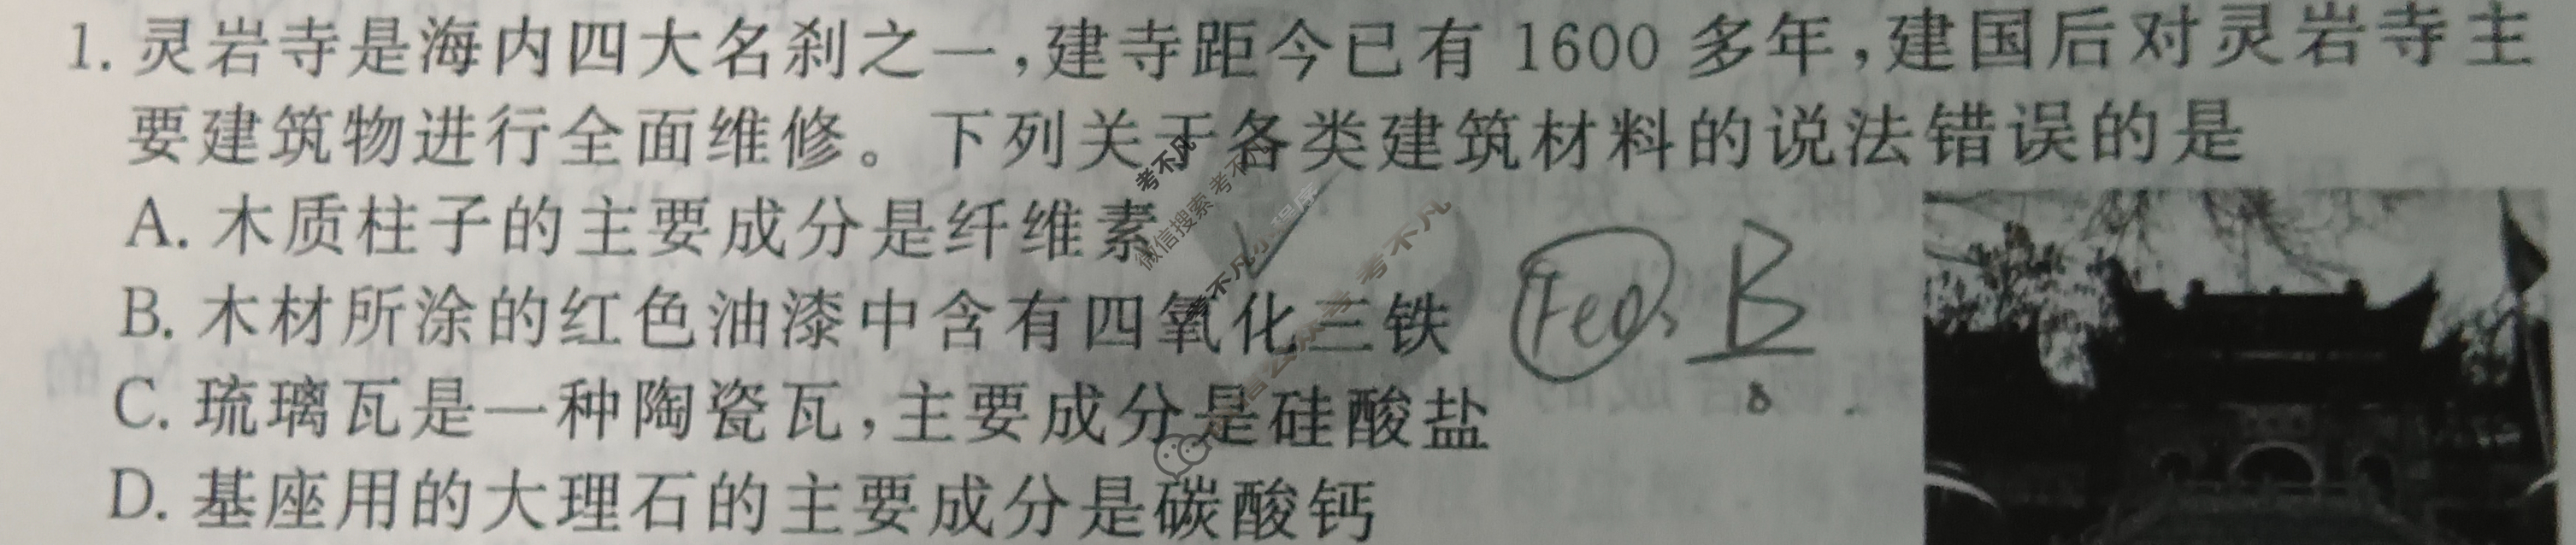 1. 灵岩寺是海内四大名刹之一,建寺距今已有 1600 多年,建国后对灵岩寺主
要建筑物进行全面维修。下列关于各类建筑材料的说法错误的是
A. 木质柱子的主要成分是纤维素
B. 木材所涂的红色油漆中含有四氧化三铁
B
C. 琉璃瓦是一种陶瓷瓦,主要成分是硅酸盐
D. 基座用的大理石的主要成分是碳酸钙
考不凡
微信搜索 考不凡
考不凡小程序
考不凡